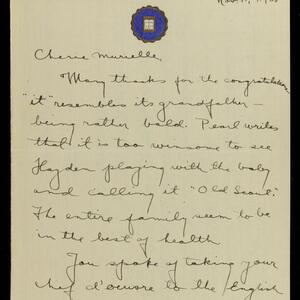 Cherie Murielle,
Many thanks for the congratulations
"it" resembles its grandfather —
being rather bald. Pearl writes
that it is too winsome to see
Hayden playing with the baby
and calling it "Old Scout."
The entire family seem to be
in the best of health
You spoke of taking your
chef d'oeuvre to the English